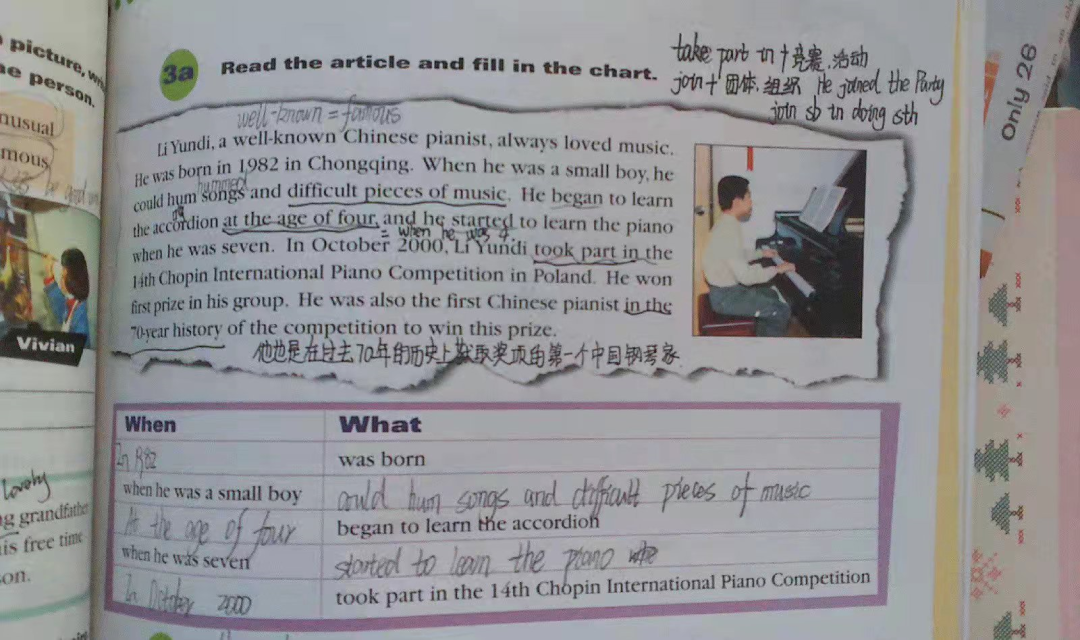 picture, wri
e person.
nusual
mous
Vivian
lovely
grandfather
is free time
son.
3a
Read the article and fill in the chart.
take part in + 竞赛.活动
join + 团体.组织 He joined the Party
join sb in doing sth
Only 26
well-known = famous
Li Yundi, a well-known Chinese pianist, always loved music.
He was born in 1982 in Chongqing. When he was a small boy, he
hummed
could hum songs and difficult pieces of music. He began to learn
the accordion at the age of four, and he started to learn the piano
= when he was 4.
when he was seven. In October 2000, Li Yundi took part in the
14th Chopin International Piano Competition in Poland. He won
first prize in his group. He was also the first Chinese pianist in the
70-year history of the competition to win this prize.
他也是在过去70年的历史上获取奖项的第一个中国钢琴家.
When What
In 1982 was born
when he was a small boy could hum songs and difficult pieces of music
At the age of four began to learn the accordion
when he was seven started to learn the piano
In October 2000 took part in the 14th Chopin International Piano Competition